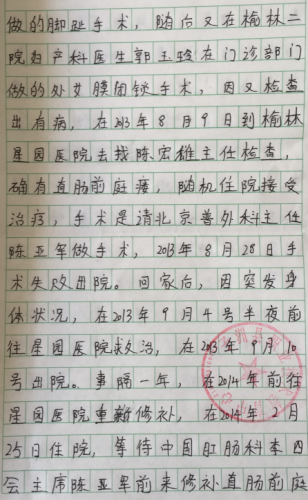 做的脚趾手术，随后又在榆林二
院妇产科医生郭玉玲在门诊部门
做的处女膜闭锁手术，因又检查
出有病，在2013年8月9日到榆林
星园医院去找陈宏雄主任检查，
确有直肠前庭瘘，随机住院接受
治疗，手术是请北京普外科主任
陈亚军做手术，2013年8月28日手
术失败出院。回家后，因突发身
体状况，在2013年9月4号半夜前
往星园医院救治，在2013年9月10
号出院。事隔一年，在2014年前往
星园医院重新修补，在2014年2月
25日住院，等待中国肛肠科本四
会主席陈亚军前来修补直肠前庭